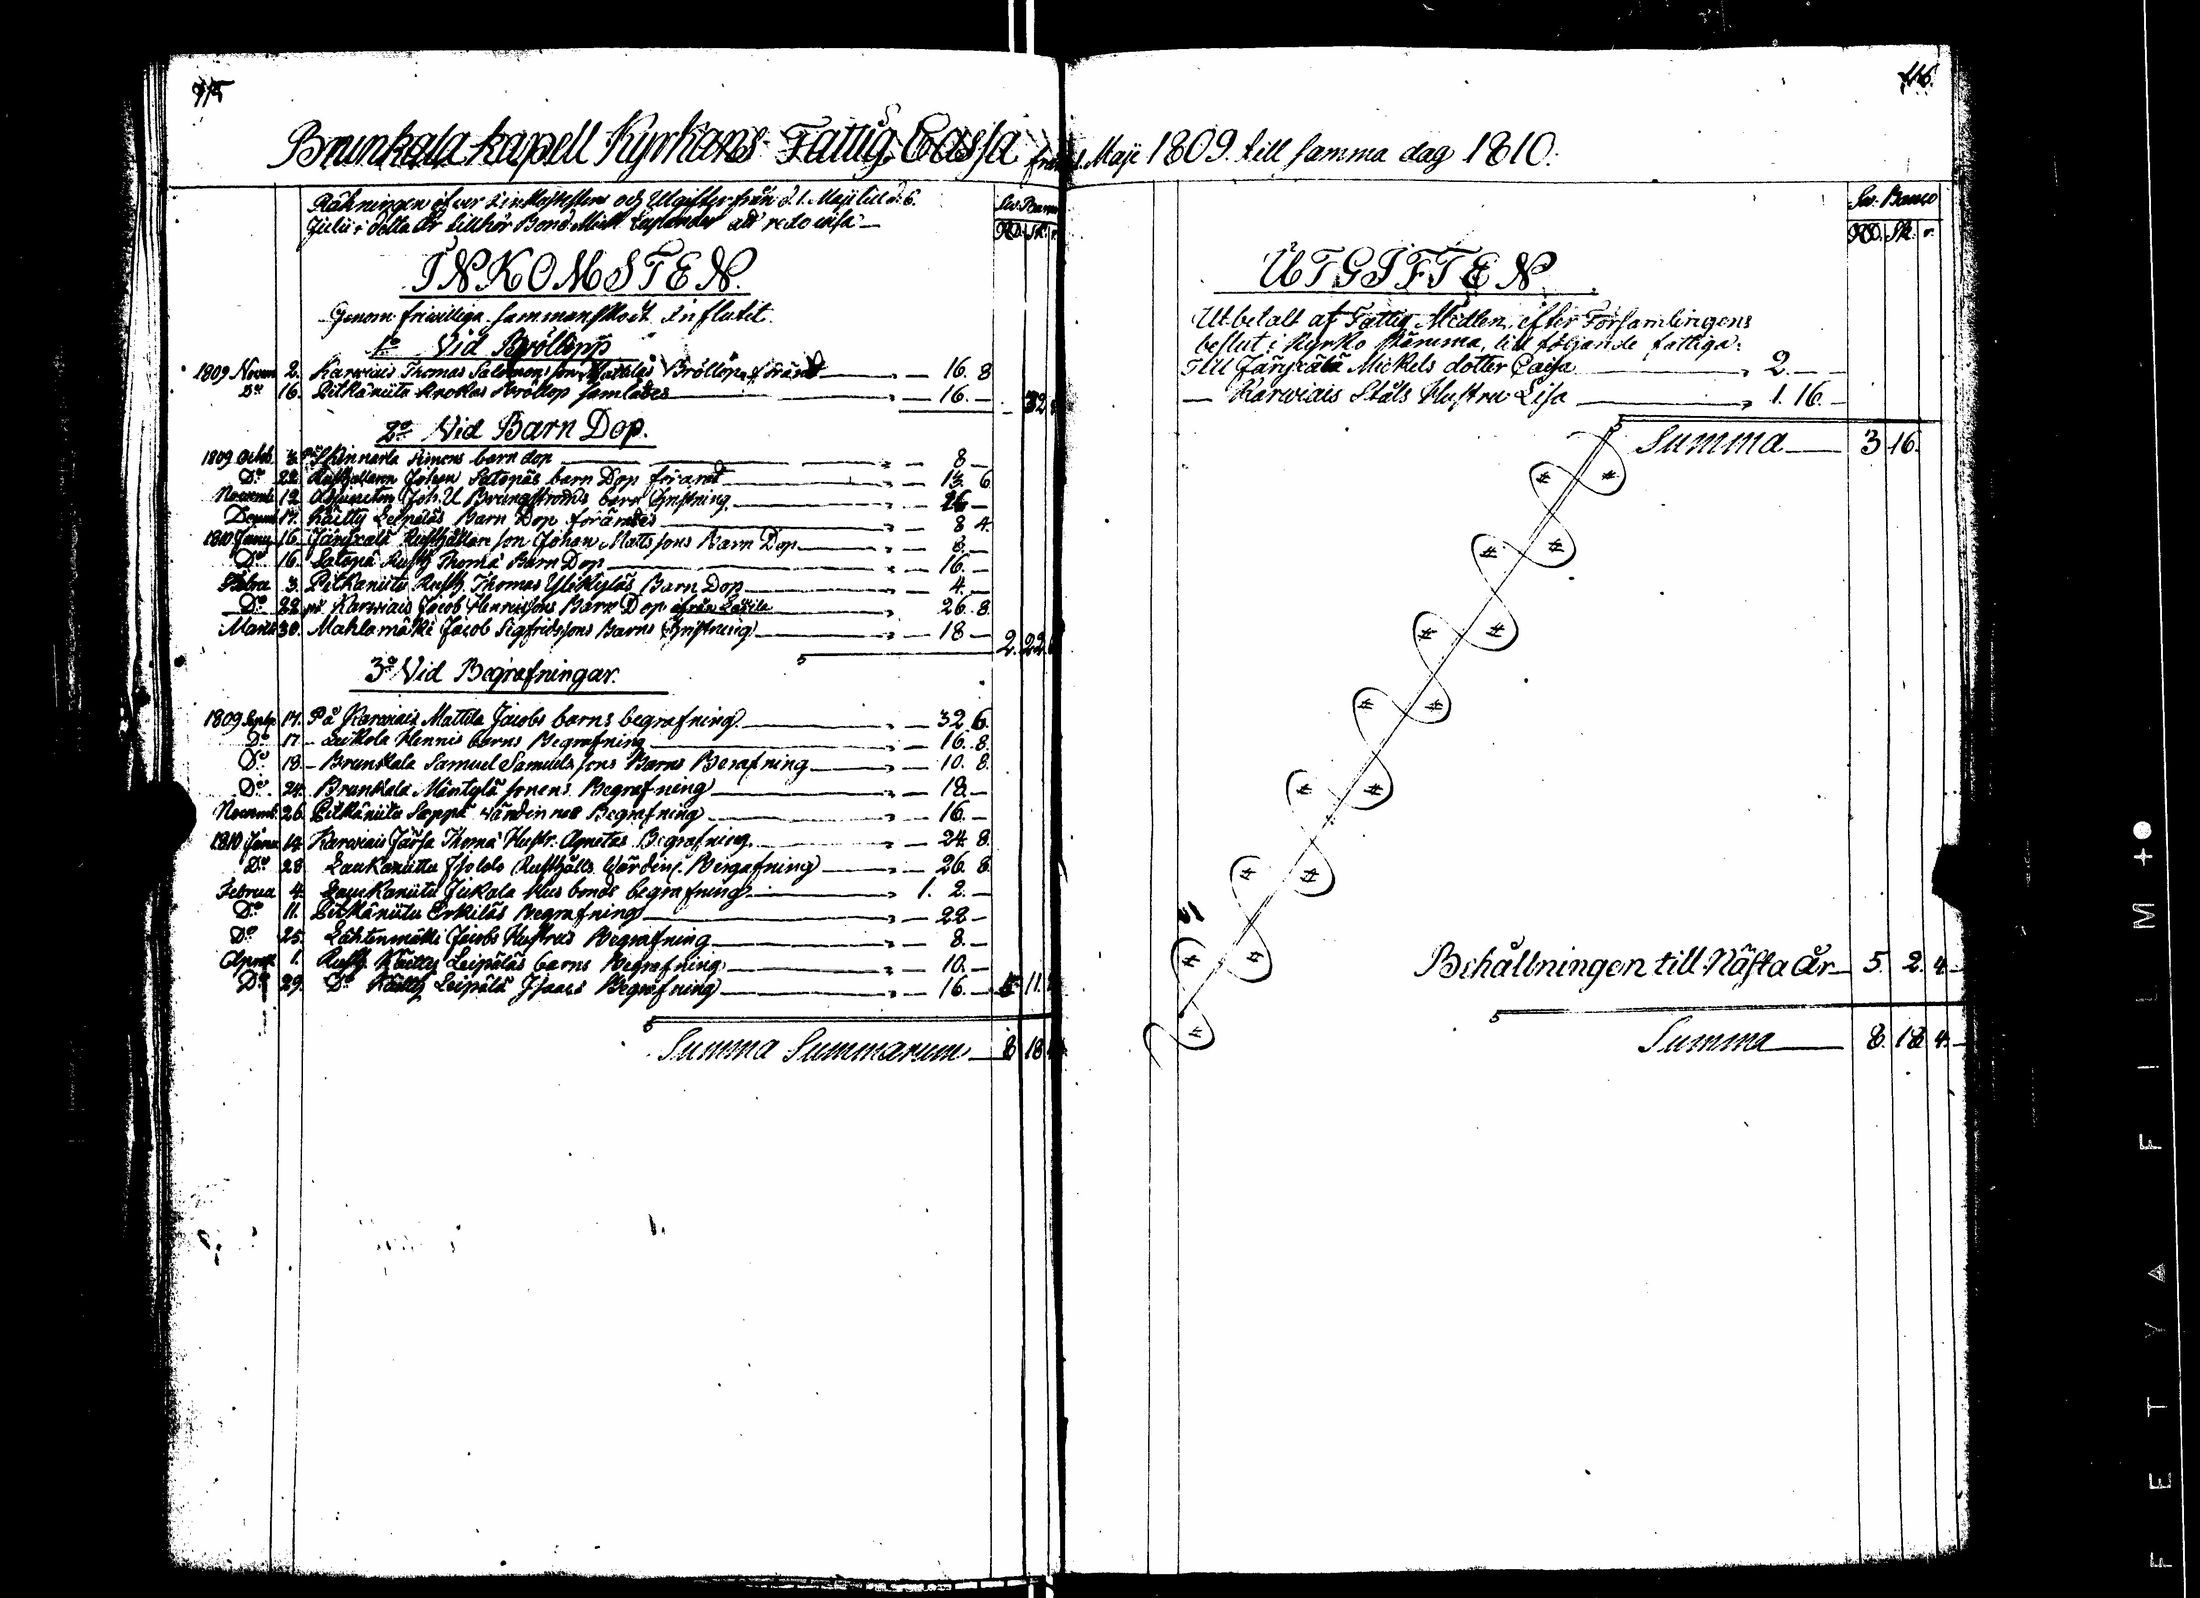 115
Brunkala kapell Kyrkans Fattig Cassa från 1. Maji 1809. till samma dag 1810.
116.
Räkningen öfver Inkomsten och Utgifter från d. 1. Maji till d. 6.
Julii i detta År tillhör Bond. Mich. att redovisa
Sv. Banco
RD. Sk. r.
INKOMSTEN.
Genom friwilliga sammanskott influtit.
1o Vid Bröllopp
1809 Novem 2. Karwiais Thomas Salomonsson Bröllop 16. 8
Do 16. Pitkäniitu Bröllop samlades 16. 32
2o Vid Barn Dop.
1809 Octob. Simons barn dop 8
Do 22. Johan Satopäs barn Dop 13. 6
Novemb 12 Joh. U. barn Christning 26
Decemb 17. Käitty Leipäläs Barn Dop 8 4.
1810 Janu 16. son Johan Mattssons Barn Dop 8.
Do 16. Satopä Rusth. Thoma Barn Dop 16.
Febru 3. Pitkäniitu Rusth. Thomas Barn Dop 4.
Do 22 på Karwiais Jacob Henricssons Barn Dop 26. 8.
Marti 30. Mahlamäki Jacob Sigfridssons Barns Christning 18 2. 22.
3o Vid Begrafningar.
1809 Septe 17. På Karwiais Mattila Jacobs barns begrafning 32 6.
Do 17 Leikola Hennis barns Begrafning 16. 8.
Do 18. Brunkala Samuel Samuelssons Barns Berafning 10. 8.
Do 24. Brunkala Mäntylä sonens Begrafning 18.
Novemb. 26. Pitkäniitu Seppä Begrafning 16.
1810 Janu 14. Karwiais Jarsa Thoma Hustr. Agnetas Begrafning 24. 8.
Do 28 Laukaniittu Begrafning 26. 8.
Februa 4. Laukaniitu Jukala Husbonds begrafning 1. 2.
Do 11. Pitkäniitu Erkiläs Begrafning 28
Do 25. Lähtenmäki Jacobs Hustrus Begrafning 8.
April 1. Rusth. Käitty Leipäläs barns Begrafning 10.
Do 29. Do Käitty Leipälä Isaacs Begrafning 16. 5 11.
Summa Summarum 8 18
Sv. Banco
RD. Sk. r.
UTGIFTEN.
Utbetalt af Fattig Medlen, efter Församlingens
beslut i Kyrko stämma, till följande fattiga:
Till Mickels dotter Caisa 2.
Karwiais Ståls Hustru Lisa 1. 16.
Summa 3 16.
Behållningen till Nästa År 5. 2. 4.
Summa 8. 18 4.
F E T Y A F I L M